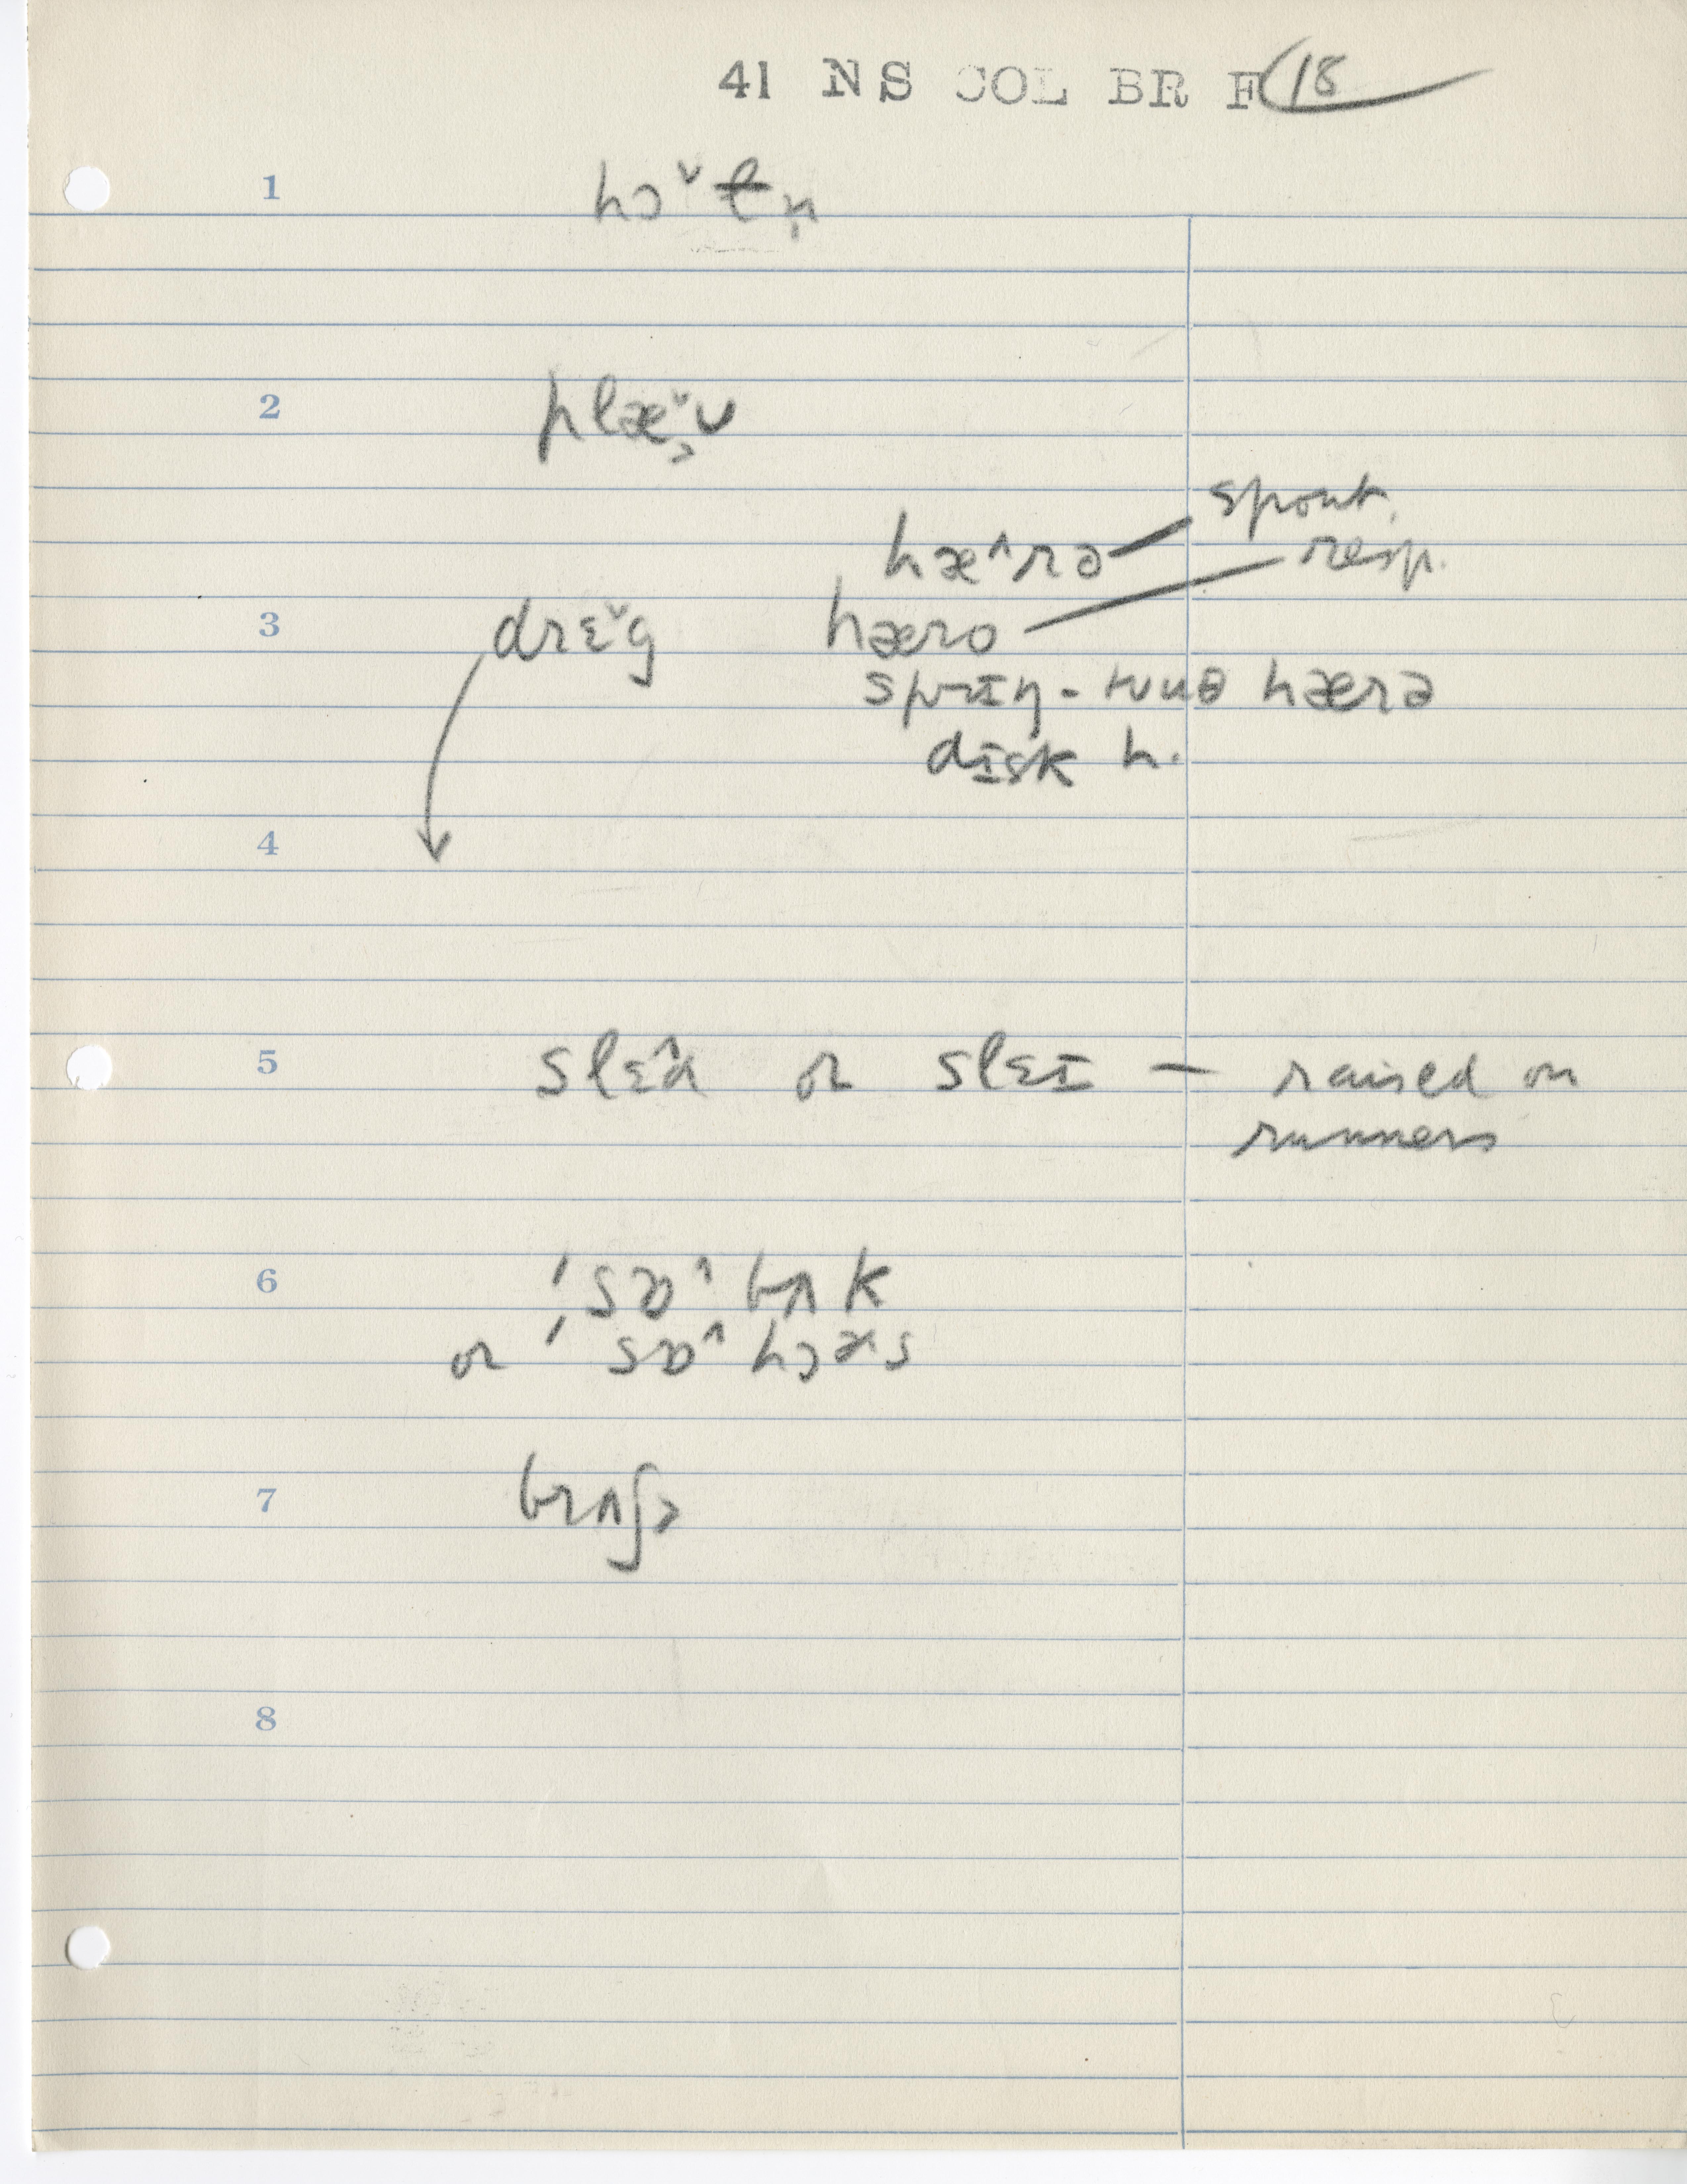 41 NS COL BR F 18
1 hɔ˅ t̶n̩
2 plæ˅ʊ
hæ˄rə — spont.
resp.
3 drɛ˅g hæro
sprɪŋ-tuθ hærə
disk h.
4
5 slɛ˄d or slɛɪ — raised on
runners
6 'sɒ˄ bʌk
or 'sɒ˄ hɔəs
7 brʌʃ
8